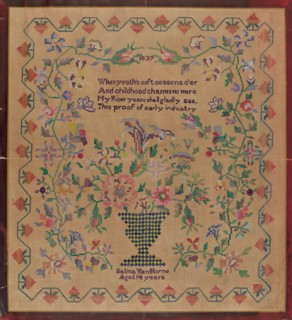 1837
When youth's soft season's o'er
And childhood charms no more
My Riper years shall gladly see,
This proof of early industry
Selina VanHorne
Aged 14 years